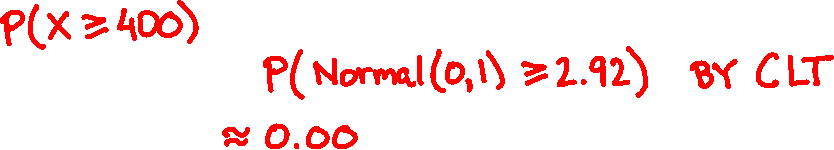 P(X ≥ 400)
P(Normal(0,1) ≥ 2.92) BY CLT
≈ 0.00